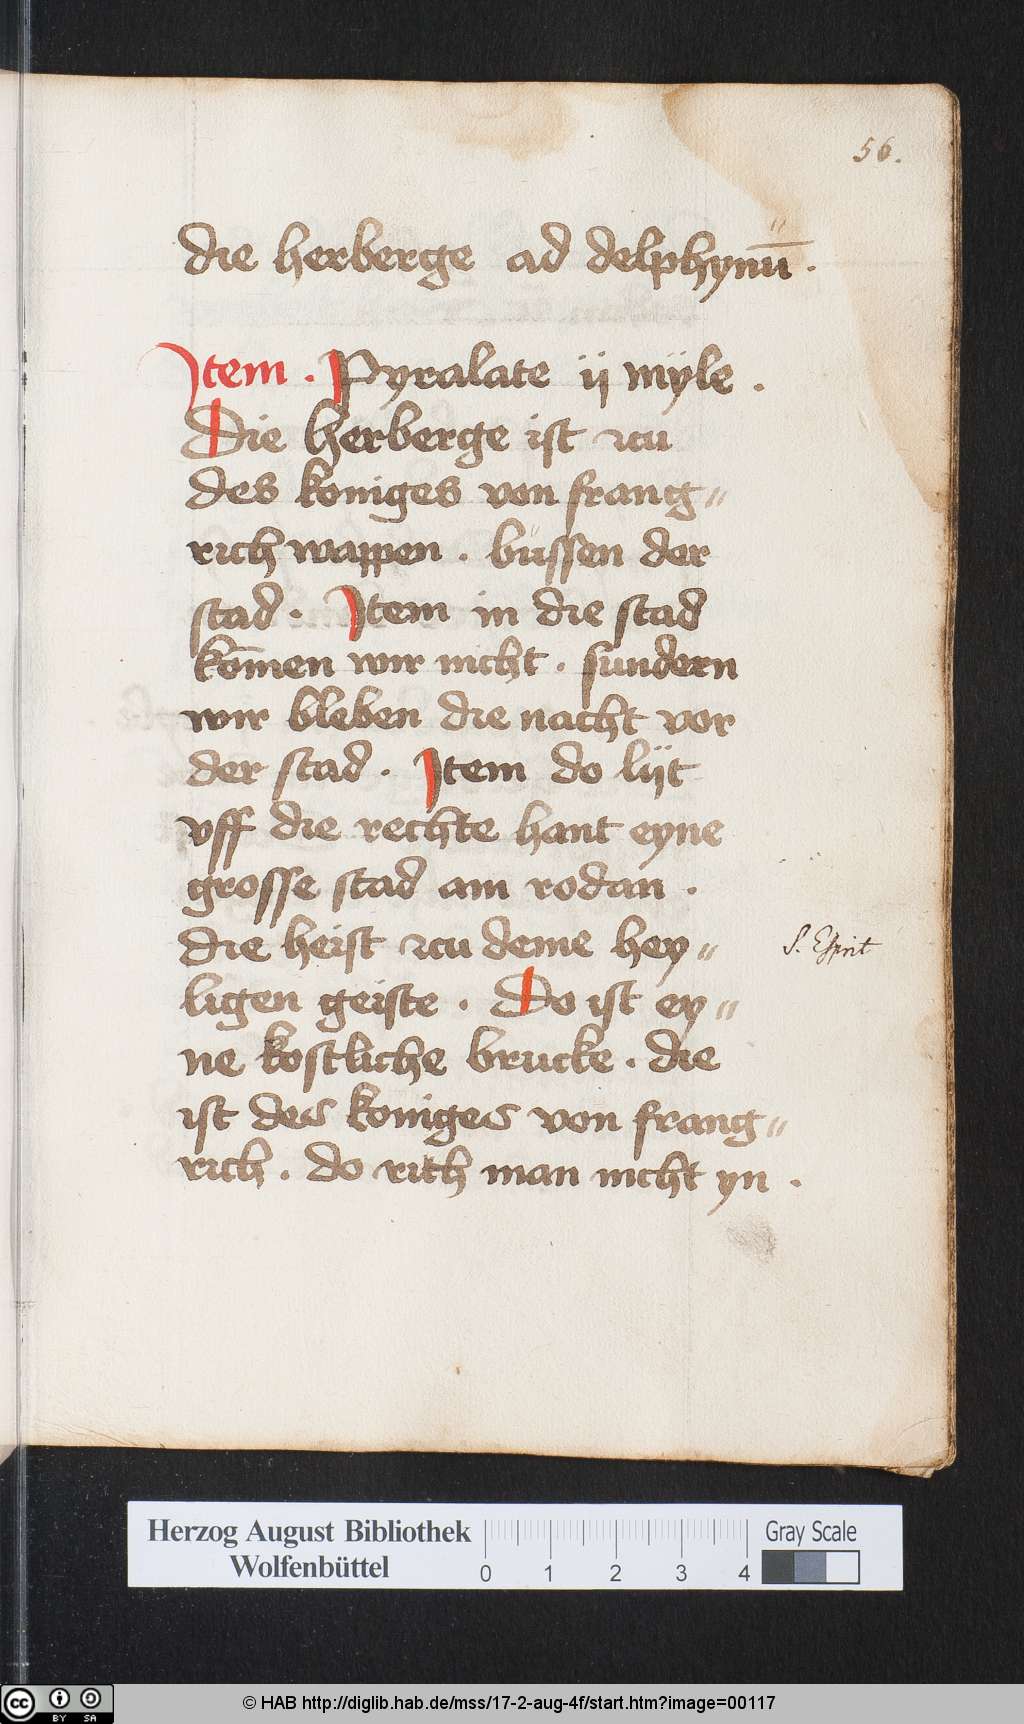 56.
die herberge ad delphynū .
Item . Pyralate ij myle .
Die herberge ist zcu
des koniges von frang〃
rich wappen . bussen der
stad . Item in die stad
kom̄en wir nicht . sundern
wir bleben die nacht vor
der stad . Item do lijt
vff die rechte hant eyne
grosse stad am rodan .
die heist zcu deme hey〃
ligen geiste . Do ist ey〃
ne kostliche brucke . die
ist des koniges von frang〃
rich . do rith man nicht yn .
S. Esprit
Herzog August Bibliothek
Wolfenbüttel
0 1 2 3 4
Gray Scale
cc BY SA
© HAB http://diglib.hab.de/mss/17-2-aug-4f/start.htm?image=00117